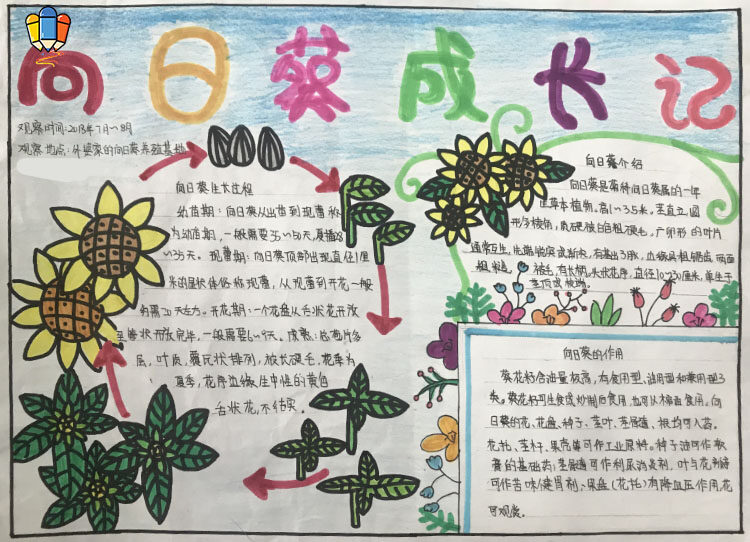 向日葵成长记
观察时间:2018年7月~8月
观察地点:外婆家的向日葵养殖基地
向日葵生长过程
幼苗期:向日葵从出苗到现蕾称
为幼苗期,一般需要35~50天,夏播28
~35天。现蕾期:向日葵顶部出现直径1厘
米的星状体俗称现蕾,从现蕾到开花一般
约需20天左右。开花期:一个花盘从舌状花开放
至管状开放完毕,一般需要6~9天。成熟:总苞片多
层,叶质,覆瓦状排列,被长硬毛,花季为
夏季,花序边缘生中性的黄色
舌状花,不结实。
向日葵介绍
向日葵是菊科向日葵属的一年
生草本植物。高1~3.5米。茎直立,圆
形多棱角,质硬被白色粗硬毛,广卵形的叶片
通常互生,先端锐突或渐尖,有基出3脉,边缘具粗锯齿,两面
粗糙,被毛,有长柄,头状花序,直径10~30厘米,单生于
茎顶或枝端。
向日葵的作用
葵花籽含油量极高,有食用型、油用型和兼用型3
类。葵花籽可生食或炒制后食用,也可从榨油食用。向
日葵的花、花盘、种子、茎叶、茎髓、根均可入药。
花托、茎秆、果壳等可作工业原料。种子油可作软
膏的基础药;茎髓可作利尿消炎剂,叶与花
可作苦味健胃剂、果盘(花托)有降血压作用,花
可观赏。